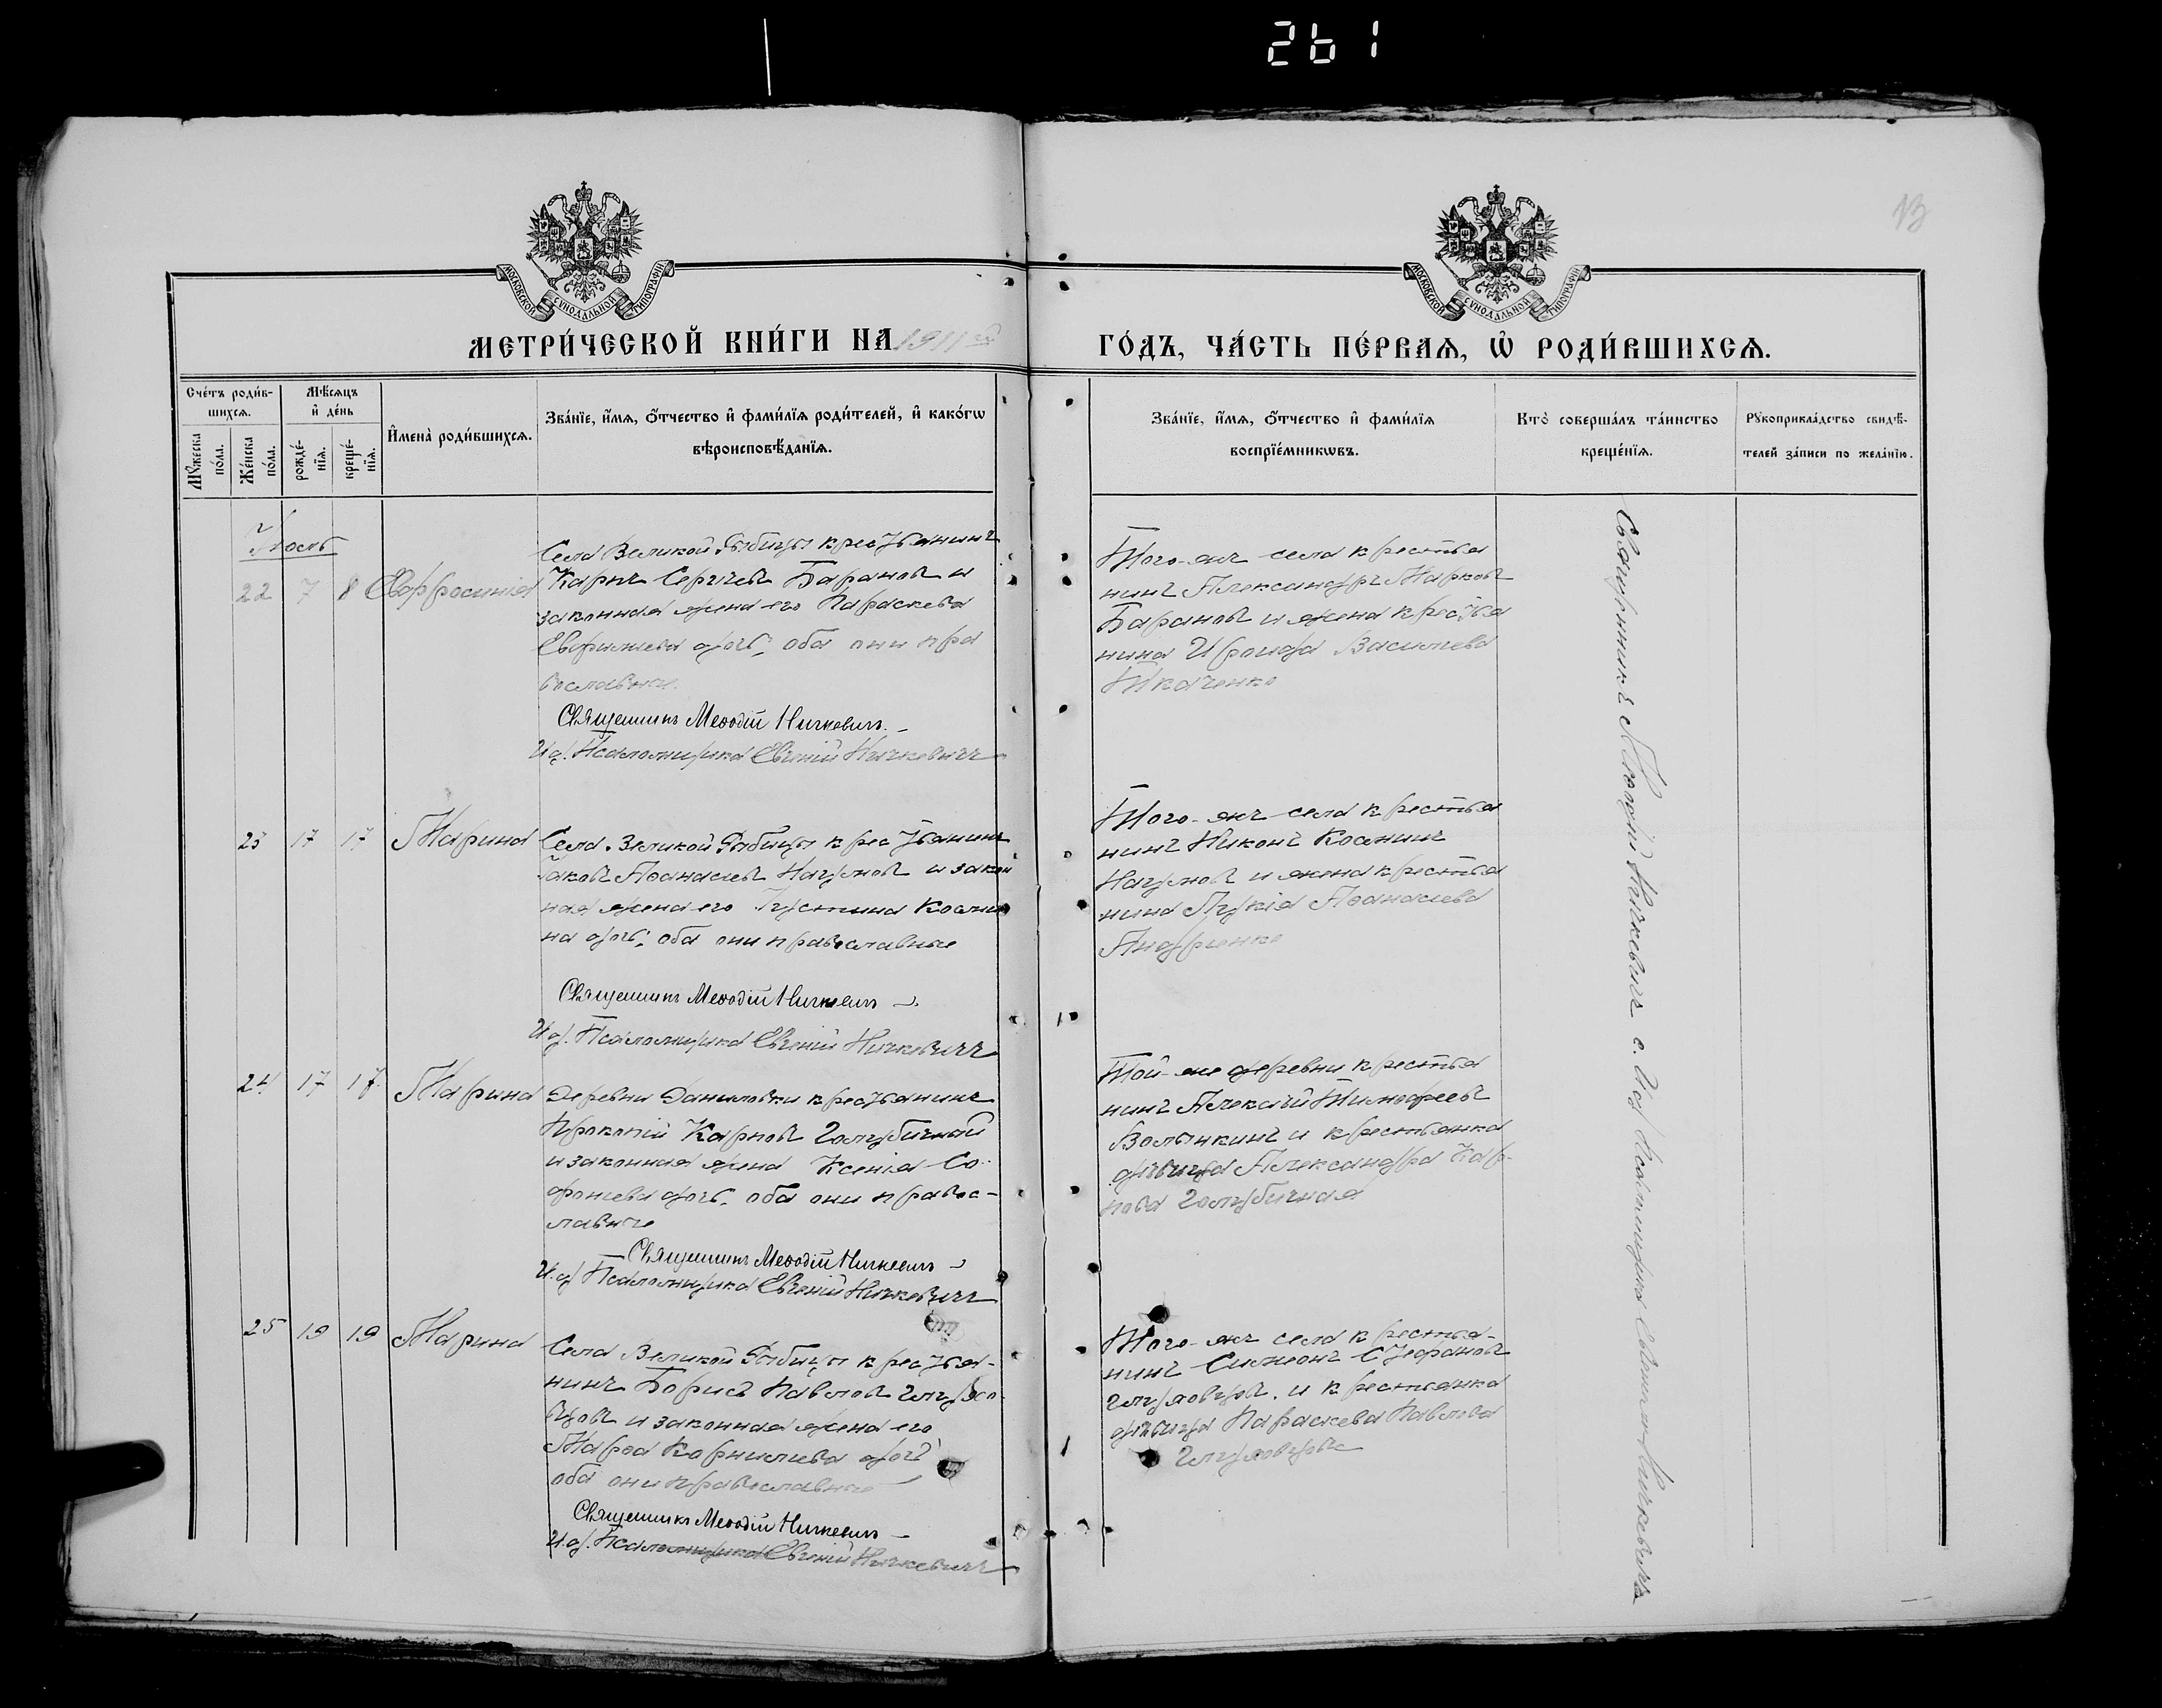 261
13
МОСКОВСКОЙ СѴНОДАЛЬНОЙ ТИПОГРАФІИ
МОСКОВСКОЙ СѴНОДАЛЬНОЙ ТИПОГРАФІИ
МЕТРИ́ЧЕСКОЙ КНИ́ГИ НА 1911 й
ГО́ДЪ, ЧА́СТЬ ПЕ́РВАЯ, Ѡ҆ РОДИ́ВШИХСЯ.
Сче́тъ роди́в-
шихся.
Мꙋ́жеска по́ла.
Же́нска по́ла.
Мѣ́сяцъ
и҆ де́нь
рожде́-
нїя.
креще́-
нїя.
И҆мена̀ роди́вшихся.
Зва́нїе, и҆́мя, ѻ҆́тчество и҆ фами́лїя роди́телей, и҆ како́гѡ
вѣроисповѣ́данїя.
Зва́нїе, и҆́мя, ѻ҆́тчество и҆ фами́лїя
воспрїе́мникѡвъ.
Кто̀ соверша́лъ та́инство
креще́нїя.
Рꙋкоприкла́дство свидѣ́-
телей за́писи по жела́нїю.
22 7 8 Евфросинія
Села Великой Рыбицы крестьянинъ
Карпъ Сергіевъ Барановъ и
законная жена его Параскева
Евфимiева дочь, оба они пра
вославные.
Священникъ Меѳодій Ничкевичъ.
И. д. Псаломщика Евгеній Ничкевичъ
Того-же села крестья
нинъ Александръ Марковъ
Барановъ и жена крестья
нина Ироида Василiева
Ткаченко
23 17 17 Марина
Села Великой Рыбицы крестьянинъ
Іаковъ Аѳанасіевъ Наумовъ и закон
ная жена его Іустина Косми
на дочь, оба они православные
Священникъ Меѳодій Ничкевичъ
И. д. Псаломщика Евгеній Ничкевичъ
Того-же села крестья
нинъ Никонъ Косминъ
Наумовъ и жена крестья
нина Лукія Аѳанасіева
Андріенко
24 17 17 Марина
Деревни Даниловки крестьянинъ
Прокопій Карповъ Голубичный
и законная жена Ксенія Со-
фоніева дочь, оба они правос-
лавные
Священникъ Меѳодій Ничкевичъ
И. д. Псаломщика Евгеній Ничкевичъ
Той-же деревни крестья
нинъ Алексій Тимоѳеевъ
Волынкинъ и крестьянка
дѣвица Александра Кар-
пова Голубичная
25 19 19 Марина
Села Великой Рыбицы крестья-
нинъ Борисъ Павловъ
и законная жена его
Марѳа Корниліева дочь
оба они православные
Священникъ Меѳодій Ничкевичъ
И. д. Псаломщика Евгеній Ничкевичъ
Того-же села крестья-
нинъ Симеонъ Стефановъ
и крестьянка
дѣвица Параскева Павлова
Священникъ Меѳодій Ничкевичъ с. Ид Псаломщика Евгеній Ничкевичъ